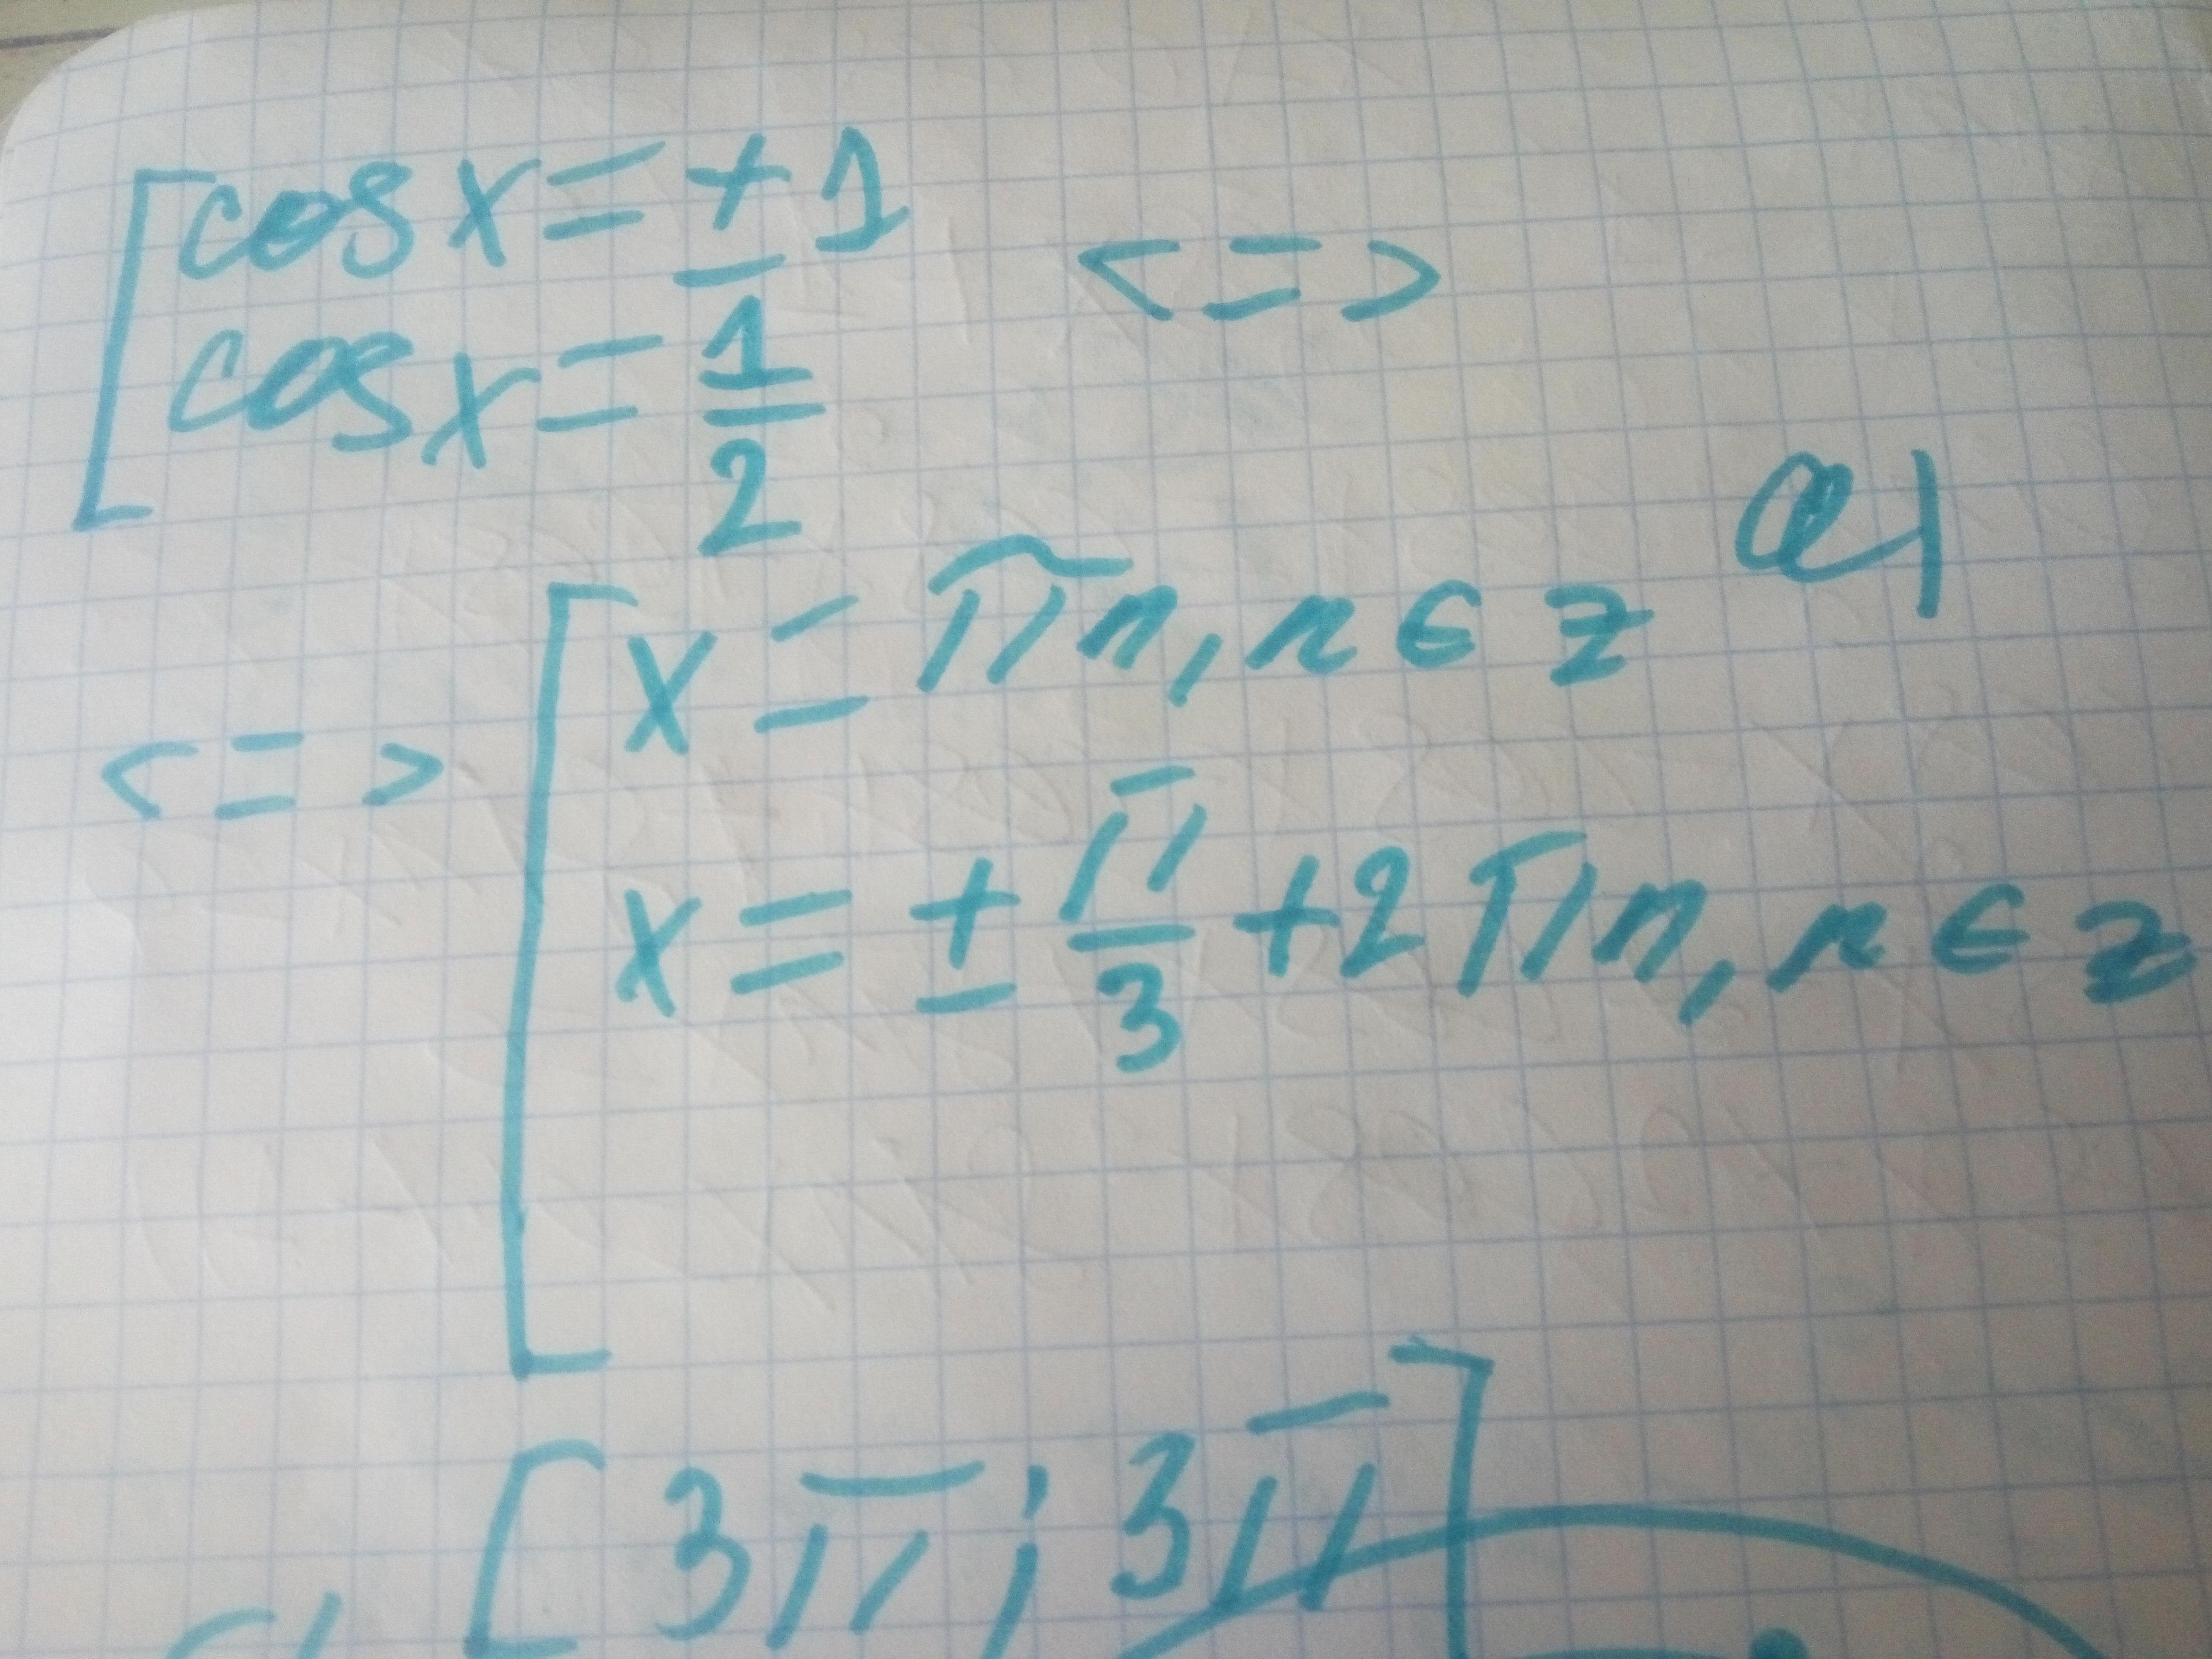 [cos x = ± 1
cos x = 1/2 <=>
а)
<=> [x = πn, n ∈ z
x = ± π/3 + 2πn, n ∈ z
[3π; 3π]